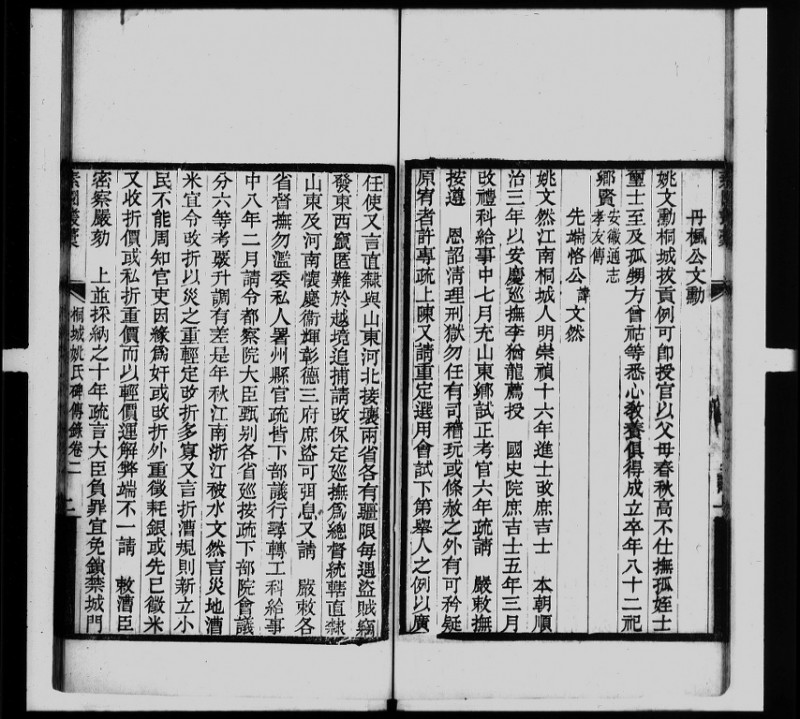 丹楓公文勳
姚文勳桐城拔貢例可即授官以父母春秋高不仕撫孤姪士
璽士至及孤甥方曾祜等悉心敎養俱得成立卒年八十二祀
鄉賢安徽通志孝友傳
先端恪公諱文然
姚文然江南桐城人明崇禎十六年進士改庶吉士 本朝順
治三年以安慶巡撫李猶龍薦授 國史院庶吉士五年三月
改禮科給事中七月充山東鄉試正考官六年疏請 嚴敕撫
按遵 恩詔淸理刑獄勿任有司稽玩或條赦之外有可矜疑
原宥者許專疏上陳又請重定選用會試下第舉人之例以廣
任使又言直隸與山東河北接壤兩省各有疆限每遇盜賊竊
發東西竄匿難於越境追捕請改保定巡撫爲總督統轄直隸
山東及河南懷慶衞輝彰德三府庶盜可弭息又請 嚴敕各
省督撫勿濫委私人署州縣官疏皆下部議行尋轉工科給事
中八年二月請令都察院大臣甄别各省巡按疏下部院會議
分六等考覈升調有差是年秋江南浙江被水文然言災地漕
米宜令改折以災之重輕定改折多寡又言折漕規則新立小
民不能周知官吏因緣爲奸或改折外重徵耗銀或先已徵米
又收折價或私折重價而以輕價運解弊端不一請 敕漕臣
密察嚴劾 上並採納之十年疏言大臣負罪宜免鎖禁城門
桐城姚氏碑傳錄卷二
二